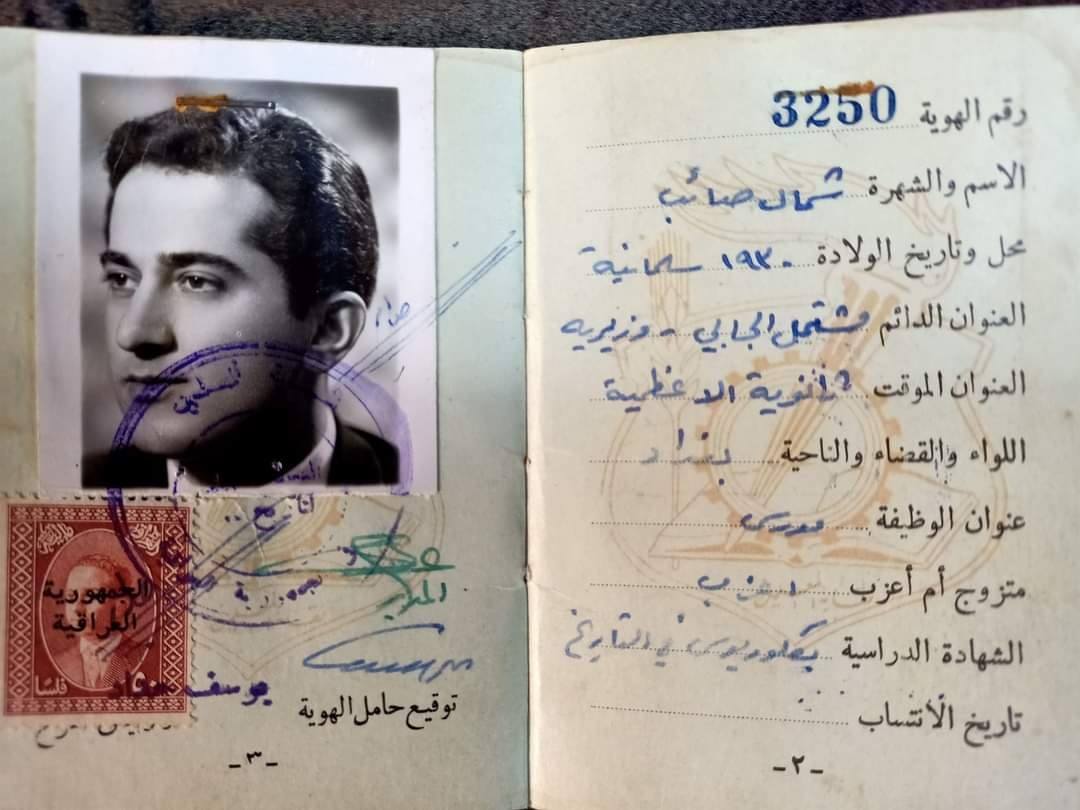 رقم الهوية 3250
الاسم والشهرة شمال صائب
محل وتاريخ الولادة ١٩٣٠ سليمانية
العنوان الدائم مشتمل الجابي - وزيريه
العنوان الموقت ثانوية الاعظمية
اللواء والقضاء والناحية بغداد
عنوان الوظيفة مدرس
متزوج أم أعزب اعزب
الشهادة الدراسية بكلوريوس في التاريخ
تاريخ الأنتساب
-٢-
الجمهورية
العراقية
فلسا
المدير
يوسف
توقيع حامل الهوية
-٣-